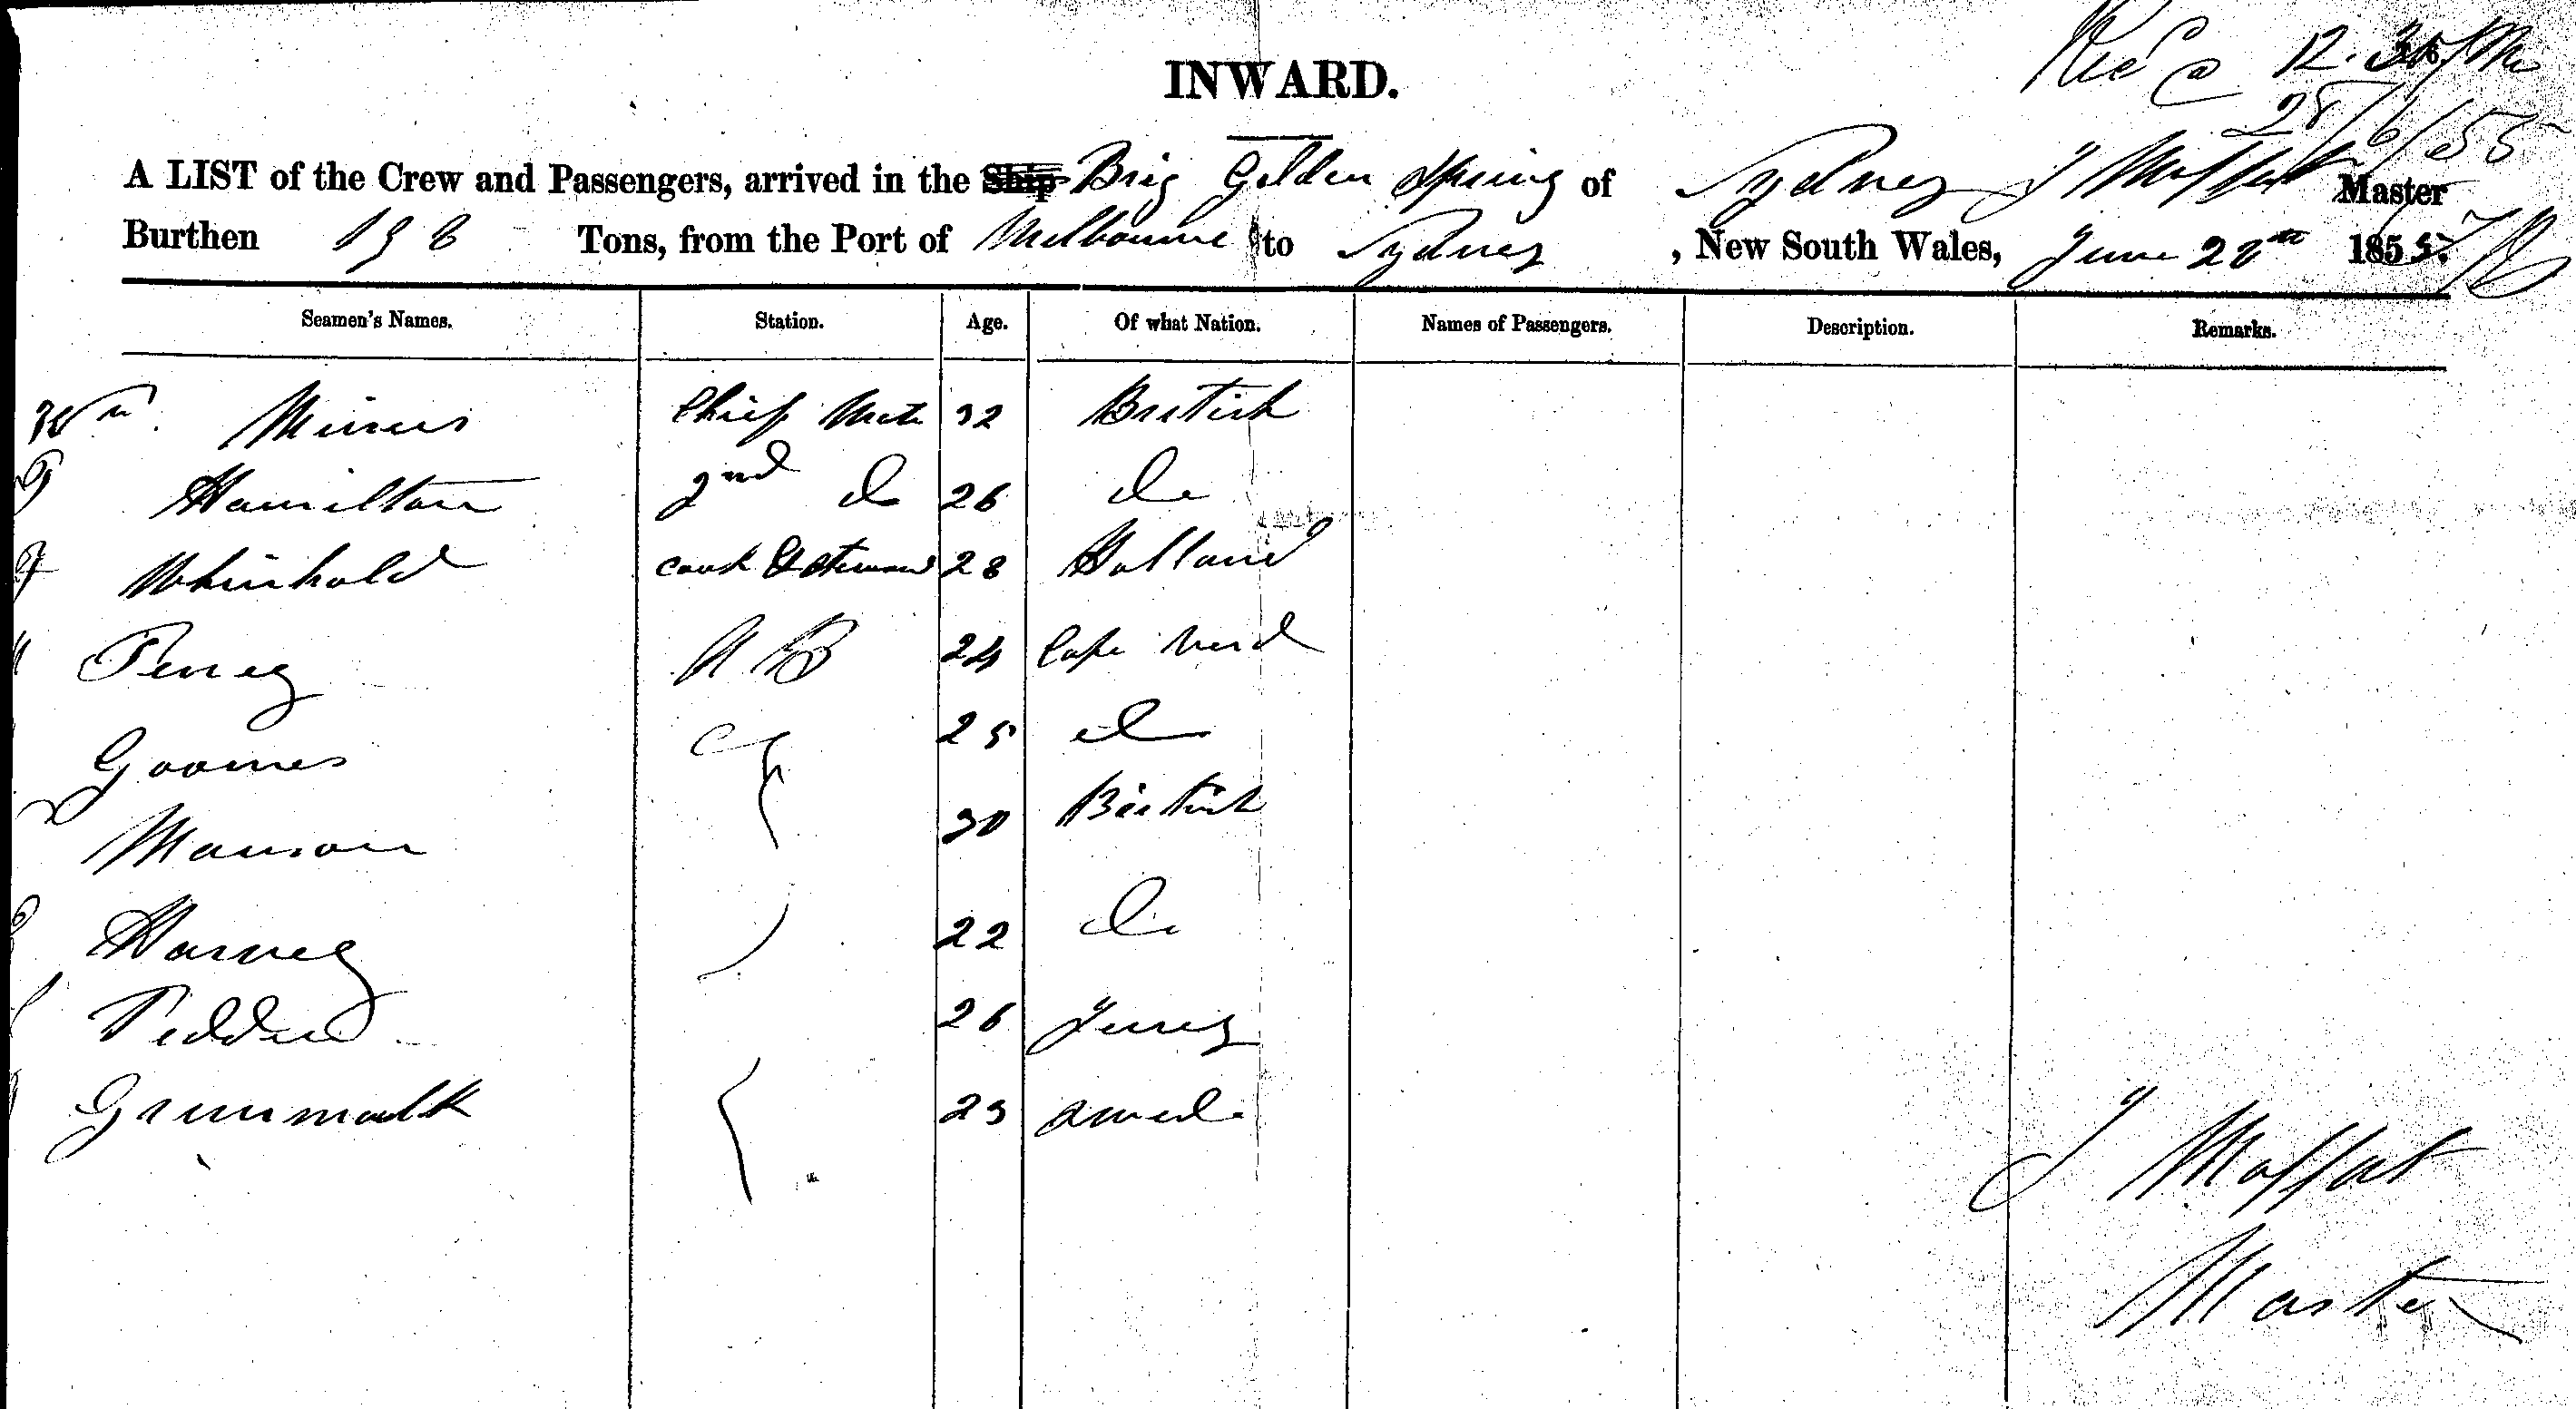 Rec @ 12.30 PM
28/6/55
INWARD.
A LIST of the Crew and Passengers, arrived in the Ship Brig Golden Spring of Sydney J Moffat Master
Burthen 198 Tons, from the Port of Melbourne to Sydney, New South Wales, June 28th 1855.
Seamen's Names. Station. Age. Of what Nation. Names of Passengers. Description. Remarks.
Wm Chief Mate 32 British
Hamilton 2nd do 26 do
Whinhold Cook & Steward 28 Holland
Perrey A B 24 Cape Verd
Goomes 25 do
Manson 30 British
Harvey 22 do
Pedden 26 Jersey
23 Swede
J Moffat
Master